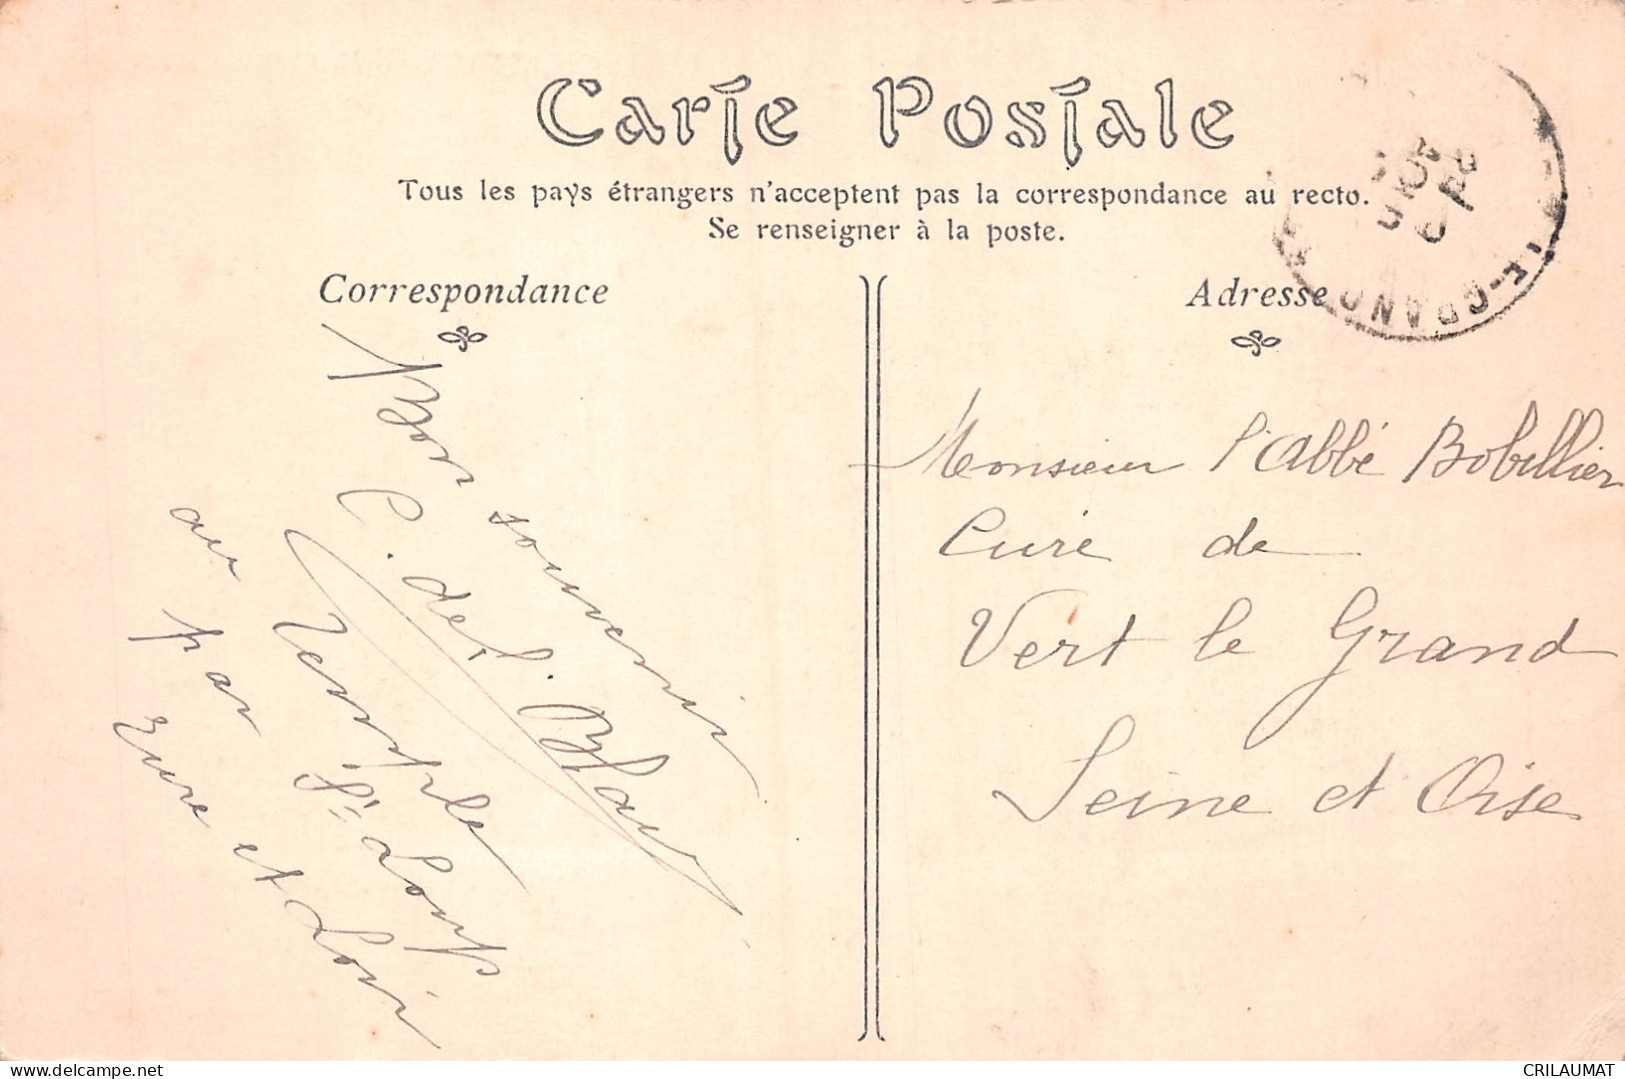 Carte Postale
Tous les pays étrangers n'acceptent pas la correspondance au recto.
Se renseigner à la poste.
Correspondance
Adresse
Bon souvenir
C. de
Temple
St Loup
au
par
Eure et Loir
Monsieur l'abbé Bobillier
Curé de
Vert le Grand
Seine et Oise
LE-GRAND
delcampe.net
CRILAUMAT